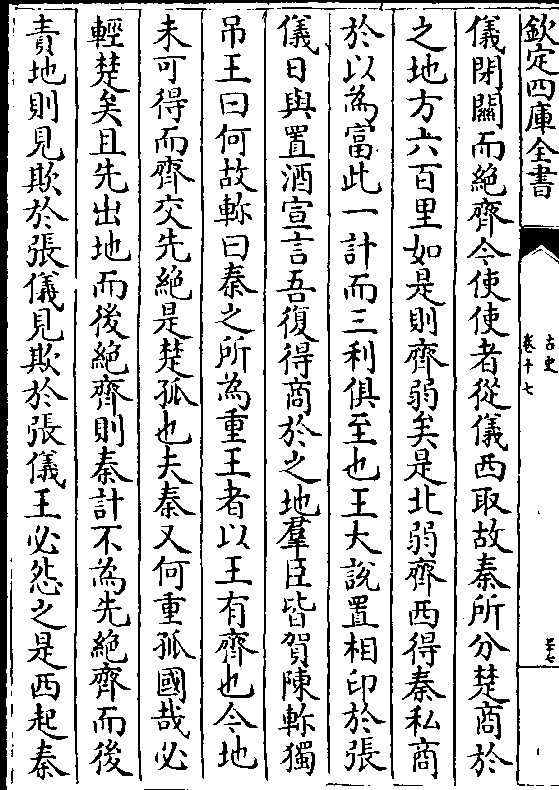 欽定四庫全書
古史
卷十七
儀閉關而絶齊今使使者從儀西取故秦所分楚商於
之地方六百里如是則齊弱矣是北弱齊西得秦私商
於以為富此一計而三利俱至也王大說置相印於張
儀日與置酒宣言吾復得商於之地羣臣皆賀陳軫獨
吊王曰何故軫曰秦之所為重王者以王有齊也今地
未可得而齊交先絶是楚孤也夫秦又何重孤國哉必
輕楚矣且先出地而後絶齊則秦計不為先絶齊而後
責地則見欺於張儀見欺於張儀王必怨之是西起秦